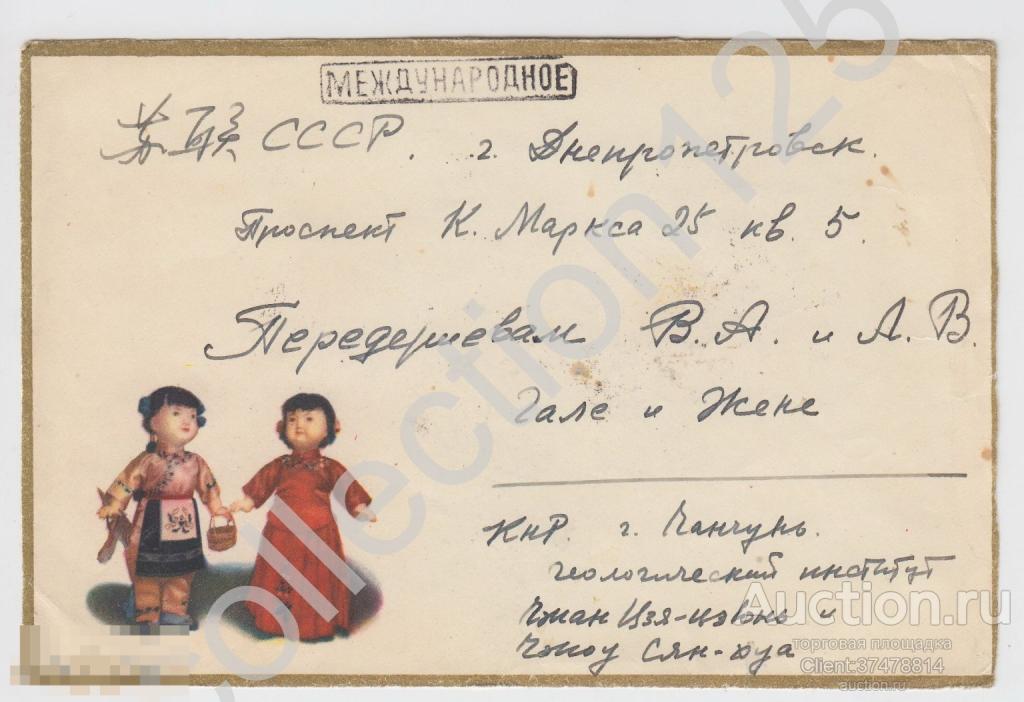 МЕЖДУНАРОДНОЕ
苏联 СССР. г. Днепропетровск.
Проспект К. Маркса 25 кв. 5.
Передериевам В. А. и Л. В.
Гале и Жене
КНР. г. Чанчунь.
геологический институт
Чжан Цзя-цзюнь и
Чжоу Сян-хуа
collection125
Auction.ru
торговая площадка
Client:37478814
auction.ru